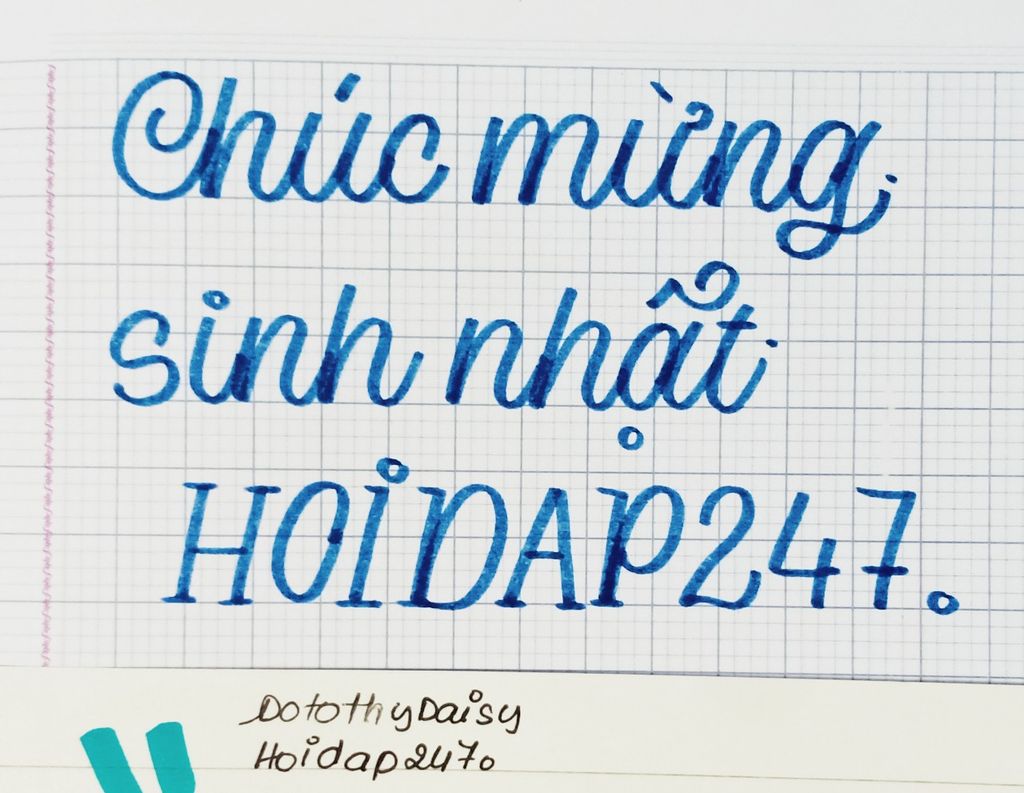 Chúc mừng
sinh nhật
HOIDAP247.
DotothyDaisy
Hoidap247.